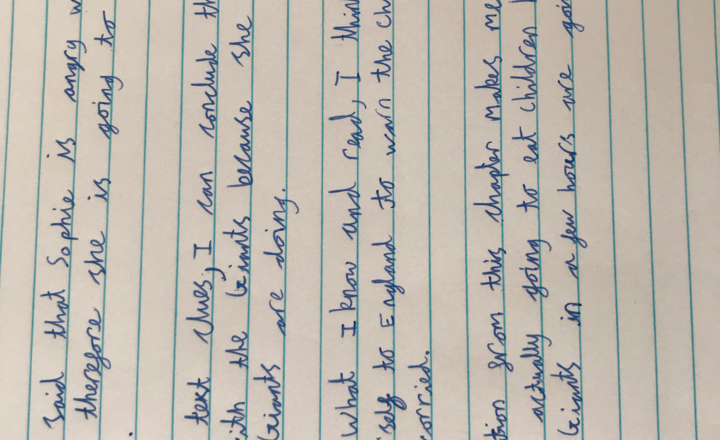 said that Sophie is angry w
therefore she is going to
.
text clues, I can conclude th
ith the Giants because she
Giants are doing.
What I know and read, I think
self to England to warn the ch
orried.
tion from this chapter makes me
actually going to eat children
Giants in a few hours are goin